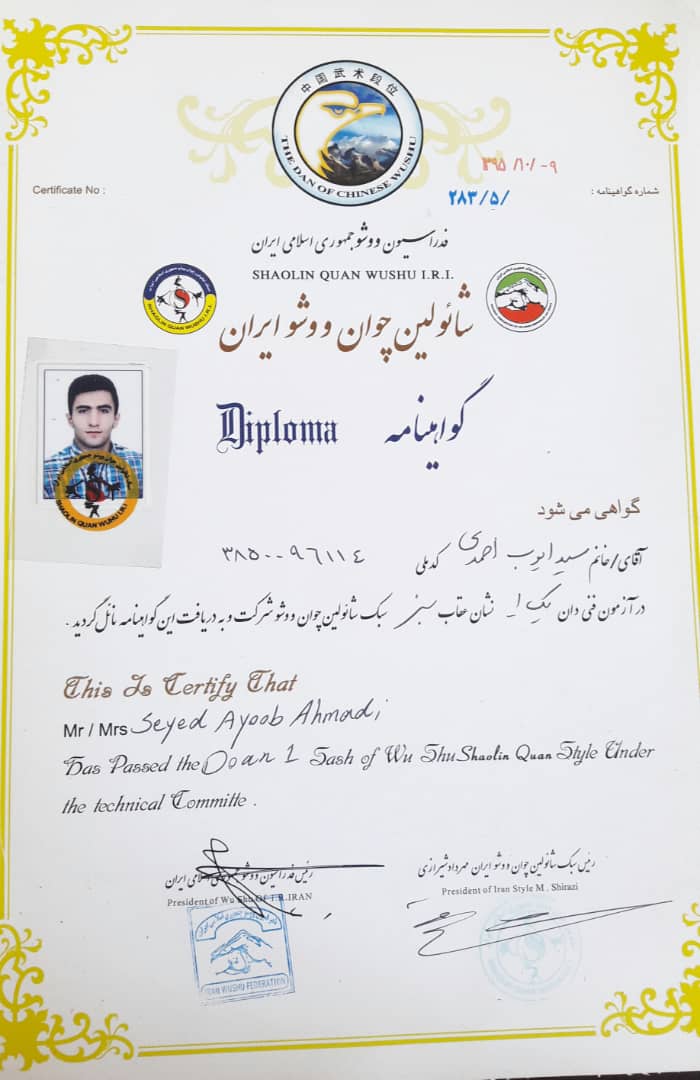 中国武术段位
THE DAN OF CHINESE WUSHU
۱۳۹۵/۱۰/۰۹
Certificate No :
شماره گواهینامه :
۲۸۳/۵/
فدراسیون ووشو جمهوری اسلامی ایران
SHAOLIN QUAN WUSHU I.R.I.
SHAOLIN QUAN WUSHU I.R.I.
شائولین چوان ووشو ایران
Diploma گواهینامه
SHAOLIN QUAN WUHU I.R.I
گواهی می شود
آقای/خانم سید ایوب احمدی کدملی ۳۸۵۰۰۹۶۱۱۴
در آزمون فنی دان یک ۱ نشان عقاب سبک شائولین چوان ووشو شرکت و به دریافت این گواهینامه نائل گردید .
This Is Certify That
Mr / Mrs Seyed Ayoob Ahmadi
Has Passed the Doan 1 Sash of Wu Shu Shaolin Quan Style Under
the technical Committe .
رئیس فدراسیون ووشو جمهوری اسلامی ایران
President of Wu Shu Of I.R.IRAN
رئیس سبک شائولین چوان ووشو ایران مهرداد شیرازی
President of Iran Style M . Shirazi
IRAN WUSHU FEDERATION